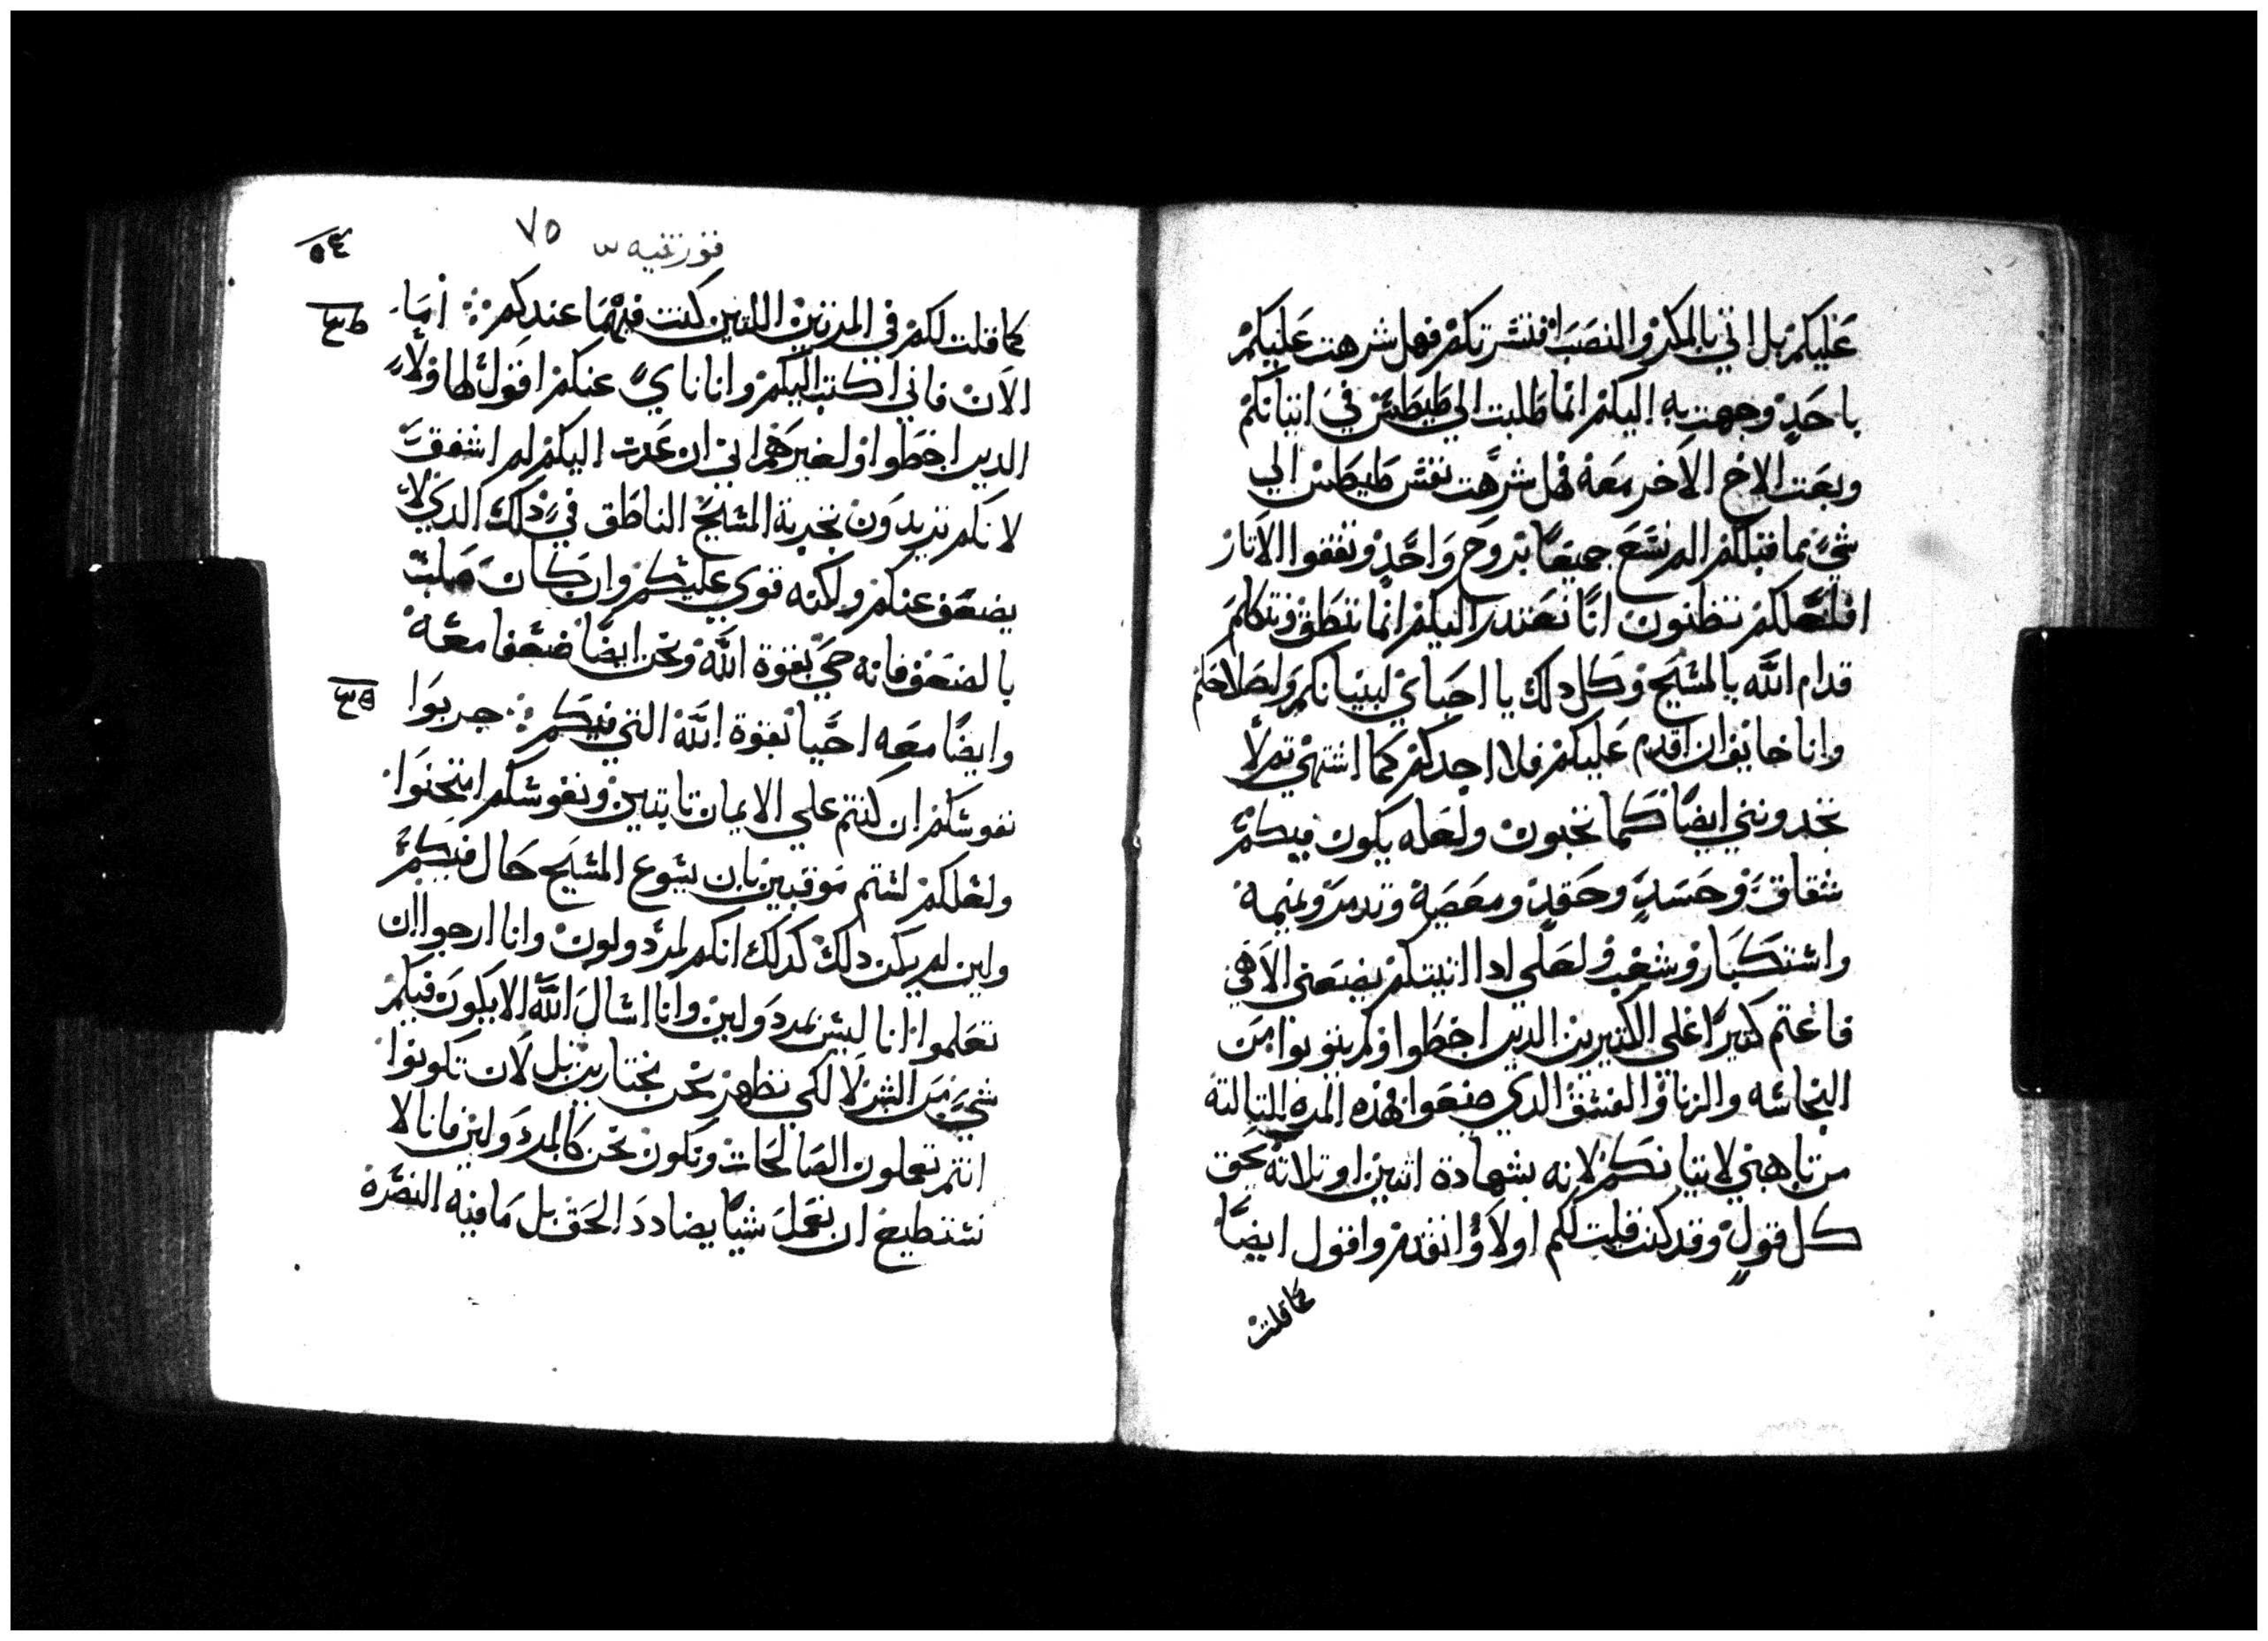 عَليكمْ بل اني بالمكر والنصَبَ افتشرتكمْ فهل شرهت عَليكمْ
باحَدٍ وجهت به اليكمْ انما طلبت الي طيطَسْ في اتيانكمْ
وبعَت الاخ الاخر معَهْ فهل شرَّهت نفسْ طيطَسْ الي
شيٍ مما قبلكمْ الم نسْعَ جميعًا بروح وَاحَدٍ ونقفوا الاتار
افلعَلكمْ تظنون انَّا نعَتدر اليكمْ انما ننطق ونتكلم
قدام اللَّه بالمسَّيح وكل دلك يا احباي لبنيانكم ولصَلاحَكم
وانا خايف ان اقدم عَليكمْ فلا اجدكمْ كما اشتهي تم لا
تجدونني ايضًا كما تحَبون ولعَله يكون فيكمْ
شقاق وحَسَدٍ وحَقدٍ ومعَصَيهْ وتدمرْ ونميمهْ
واسْتكبَار وشغبْ ولعَلي ادا اتيتكمْ يضعَني الاهي
فاغتم كتيرًا علي الكتيرين الدين اخطَوا ولم يتوبوا مَن
النجاسَه والزنا والفسْق الدي صنعَوا لهده المره التالته
من تاهبي لاتيانكمْ لانه بشهادة اتنين او تلاتهْ يحَق
كل قولٍ وقد كنت قلت لكم اولاً وانقدمْ واقول ايضًا
كما قلتْ
فورنتيه س ٧٥
كما قلت لكمْ في المرتين اللتين كنت فيهما عندكمْ ؞ امَا
الان فاني اكتب اليكمْ وانا نايٍ عنكمْ اقول لهاولاءٍ
الدين اخطَوا ولغيرهم اني ان عَدت اليكمْ لم اشفقَ
لانكم تريدون تجربة المسَّيح الناطَق فيَّ دلك الدي لا
يضعَف عنكمْ ولكنه قوي عليكمْ وان كان صَلبَ
بالضعَف فانه حَيَ بقوة اللَّه ونحن ايضًا ضعَفا معَهْ
وايضًا معَه احَيا بقوة اللَّه التي فيكم ؞ جربوَا
نفوسَكمْ ان كنتم علي الايمان تابتين ونفوسَكم امتحَنوَا
ولعَلكمْ لستم موقنين بان يسَوع المسَّيح حَال فيكمَّ
ولين لم يكن دلك كدلك انكم لمردولون وانا ارجوا ان
تعَلموا انا ليسْ بمردولين وانا اسَال اللَّه الا يكون فيكمْ
شيٍ من الشر لا لكي نظهر نحن مختارين بل لان تكونوا
انتم تعَملون الصَالحَات ونكون نحن كالمردولين فانا لا
نسَتطيع ان نعَمل شيًا يضادد الحَق بل مَا فيه النصَره